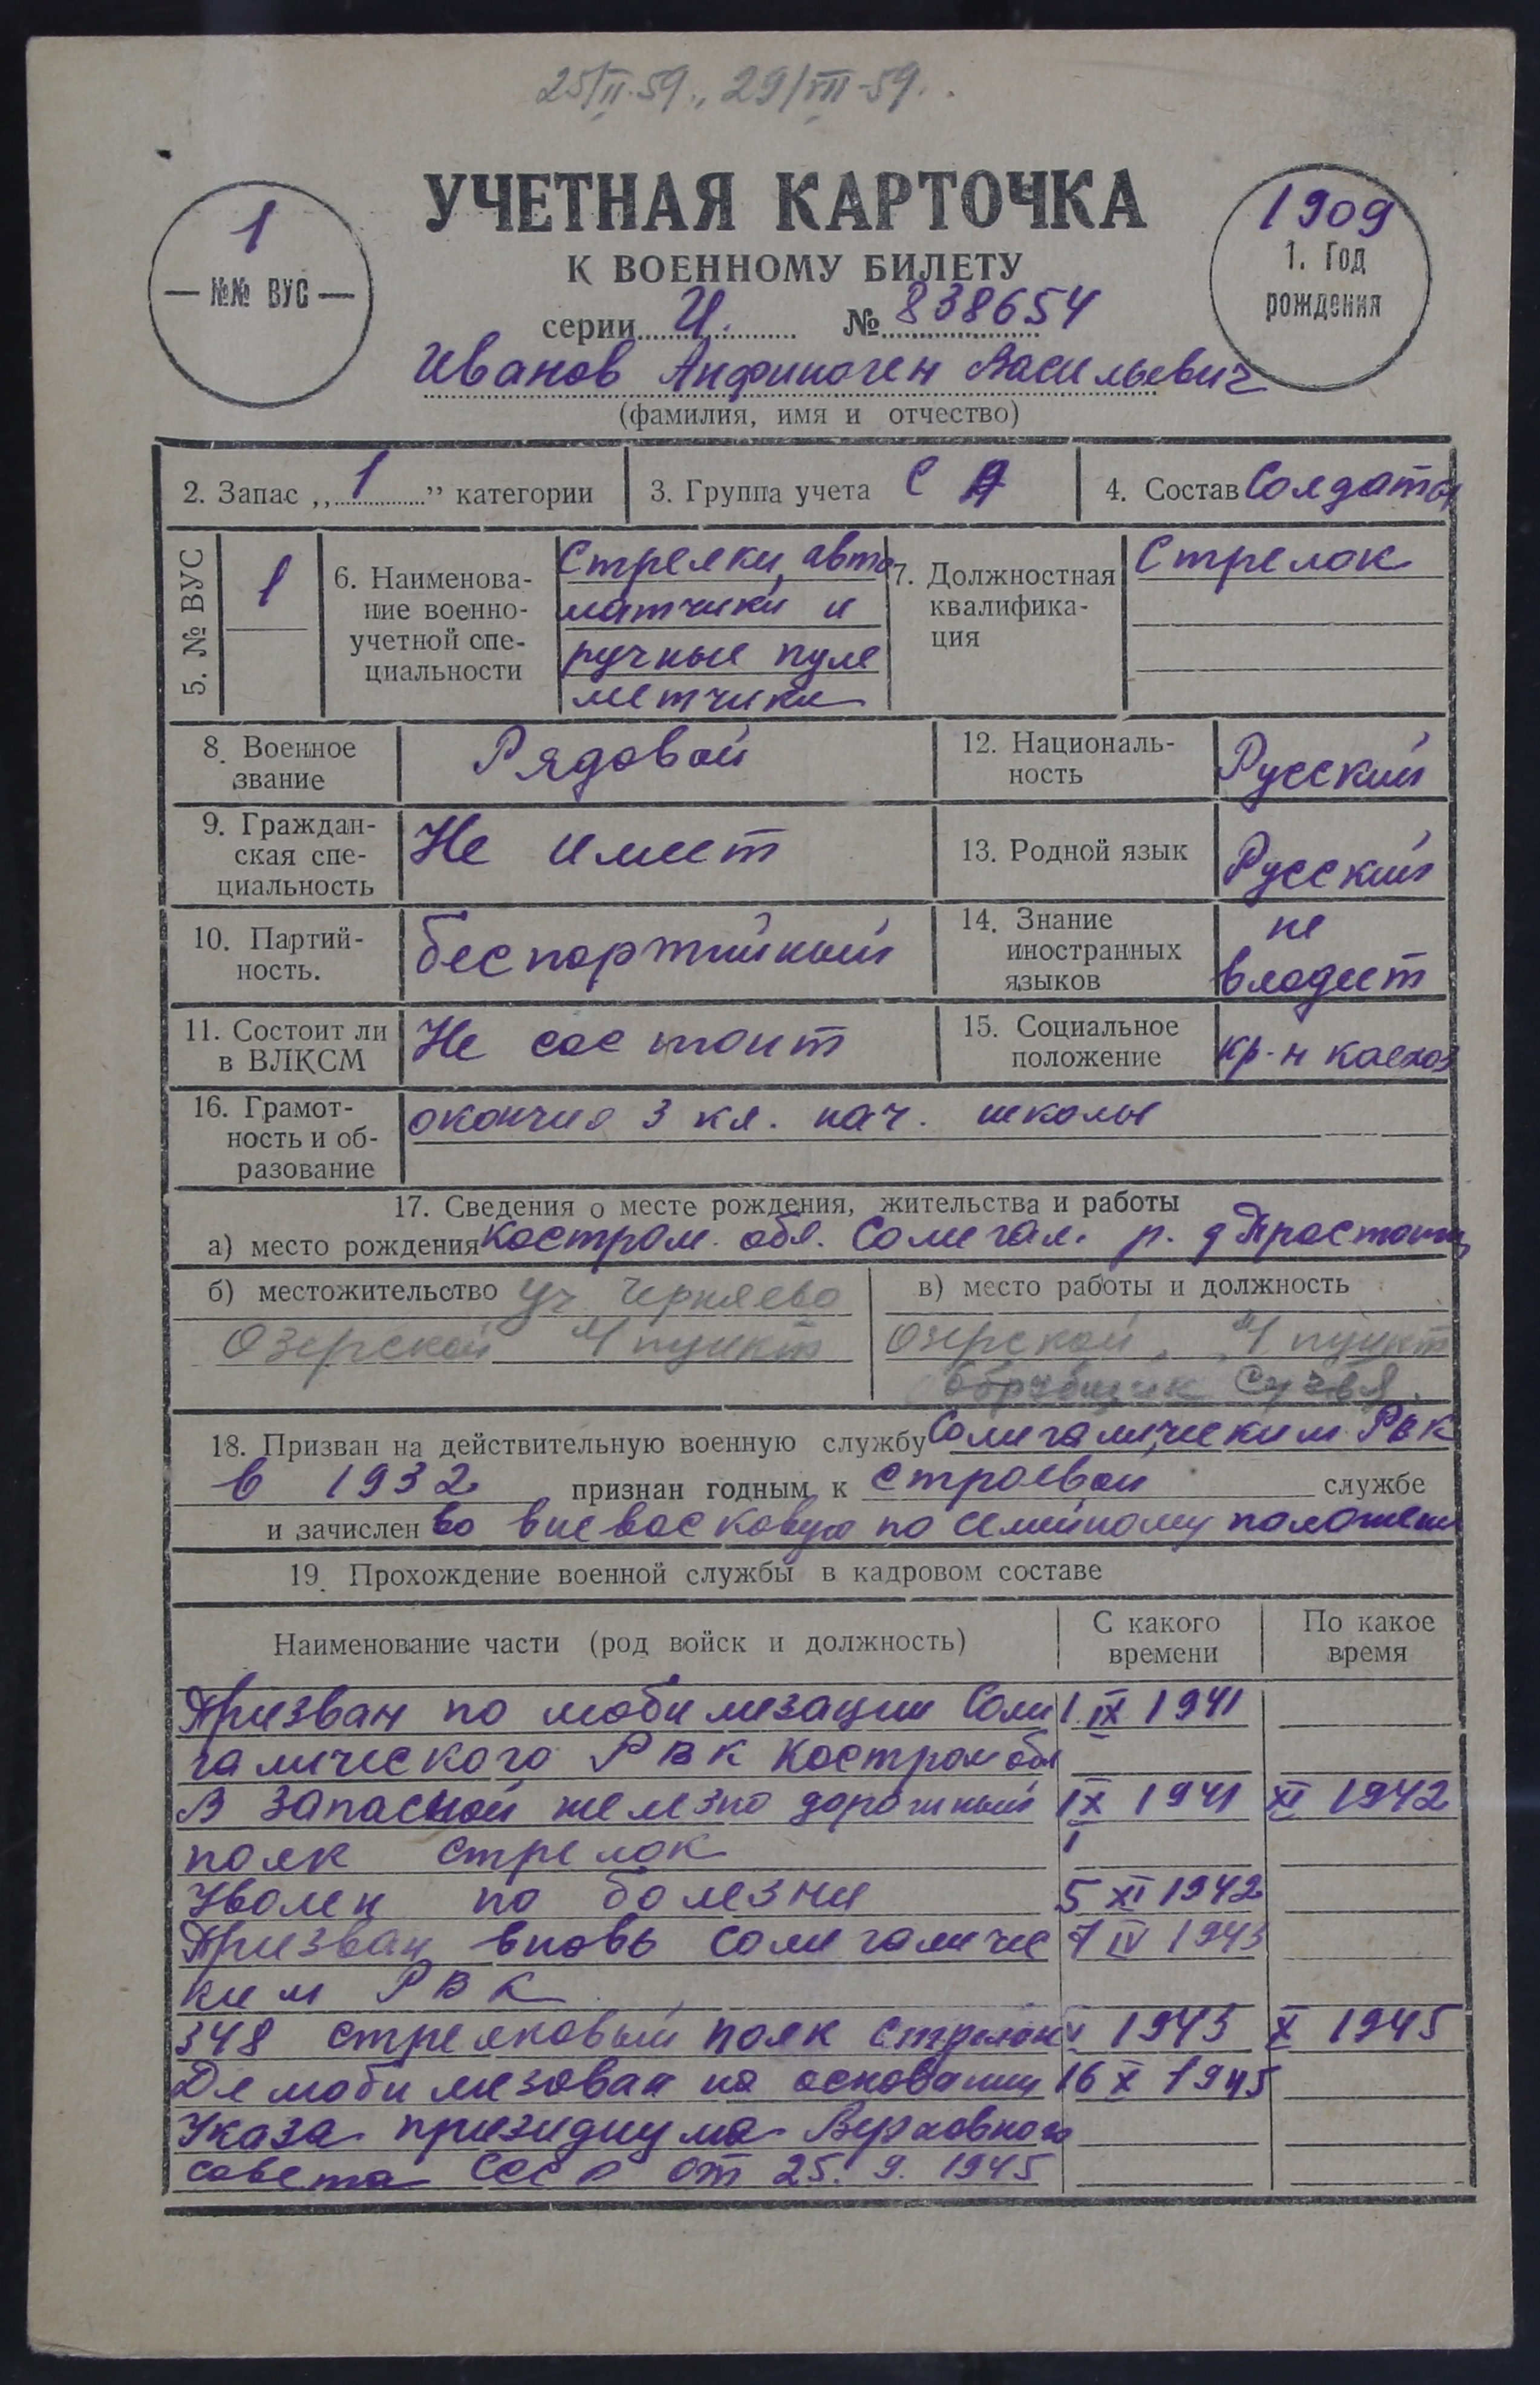 25/II-59., 29/VII-59.
УЧЕТНАЯ КАРТОЧКА
К ВОЕННОМУ БИЛЕТУ
1
№№ ВУС
1909
1. Год
рождения
серии И. № 838654
Иванов Анфиноген Васильевич
(фамилия, имя и отчество)
2. Запас „1” категории
3. Группа учета С А
4. Состав Солдаты
5. № ВУС
1
6. Наименова-
ние военно-
учетной спе-
циальности
Стрелки, авто
матчики и
ручные пуле
метчики
7. Должностная
квалифика-
ция
Стрелок
8. Военное
звание
Рядовой
12. Националь-
ность
Русский
9. Граждан-
ская спе-
циальность
Не имеет
13. Родной язык
Русский
10. Партий-
ность.
беспартийный
14. Знание
иностранных
языков
не
владеет
11. Состоит ли
в ВЛКСМ
Не состоит
15. Социальное
положение
кр-н колхоз
16. Грамот-
ность и об-
разование
окончил 3 кл. нач. школы
17. Сведения о месте рождения, жительства и работы
а) место рождения Костром. обл. Солигал. р. д
б) местожительство уч Черняево
Озерской М пункт
в) место работы и должность
Озерской М пункт
обрубщик
18. Призван на действительную военную службу Солигаличским РВК
в 1932 признан годным к строевой службе
и зачислен во вневойсковую по семейному положени
19. Прохождение военной службы в кадровом составе
Наименование части (род войск и должность)
С какого
времени
По какое
время
Призван по мобилизации Соли 1 IX 1941
галического РВК Костром обл
В запасной железно дорожный IX 1941 XI 1942
полк стрелок
Уволен по болезни 5 XI 1942
Призван вновь Солигаличс 7 IV 1943
ким РВК
348 стрелковый полк стрелок V 1943 X 1945
Демобилизован на основании 16 X 1945
Указа президиума Верховного
совета СССР от 25. 9. 1945